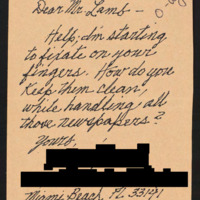 Dear Mr. Lamb —
Help, I'm starting
to fixate on your
fingers. How do you
keep them clean,
while handling all
those newspapers?
Yours,
Miami Beach, FL 33141